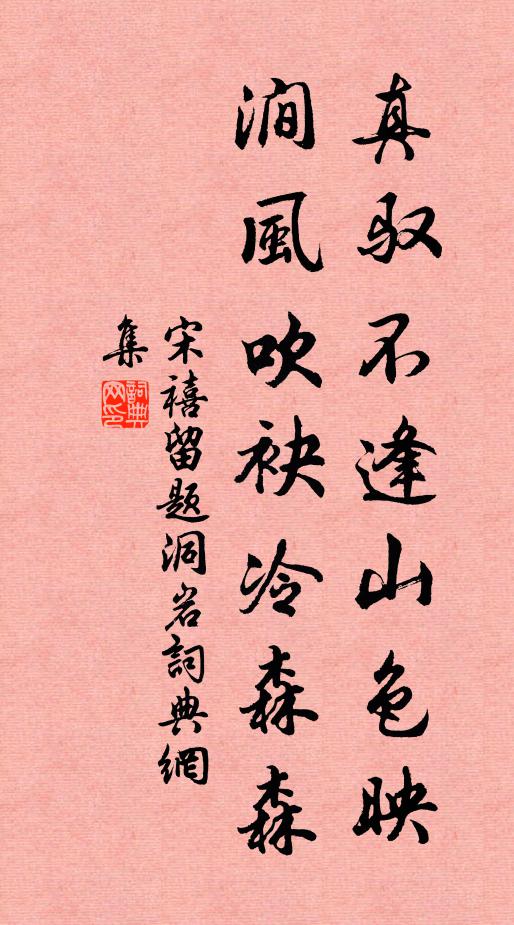 真驭不逢山色映
澗風吹袂冷森森
宋禧留题洞岩詞典網
集
詞典網印